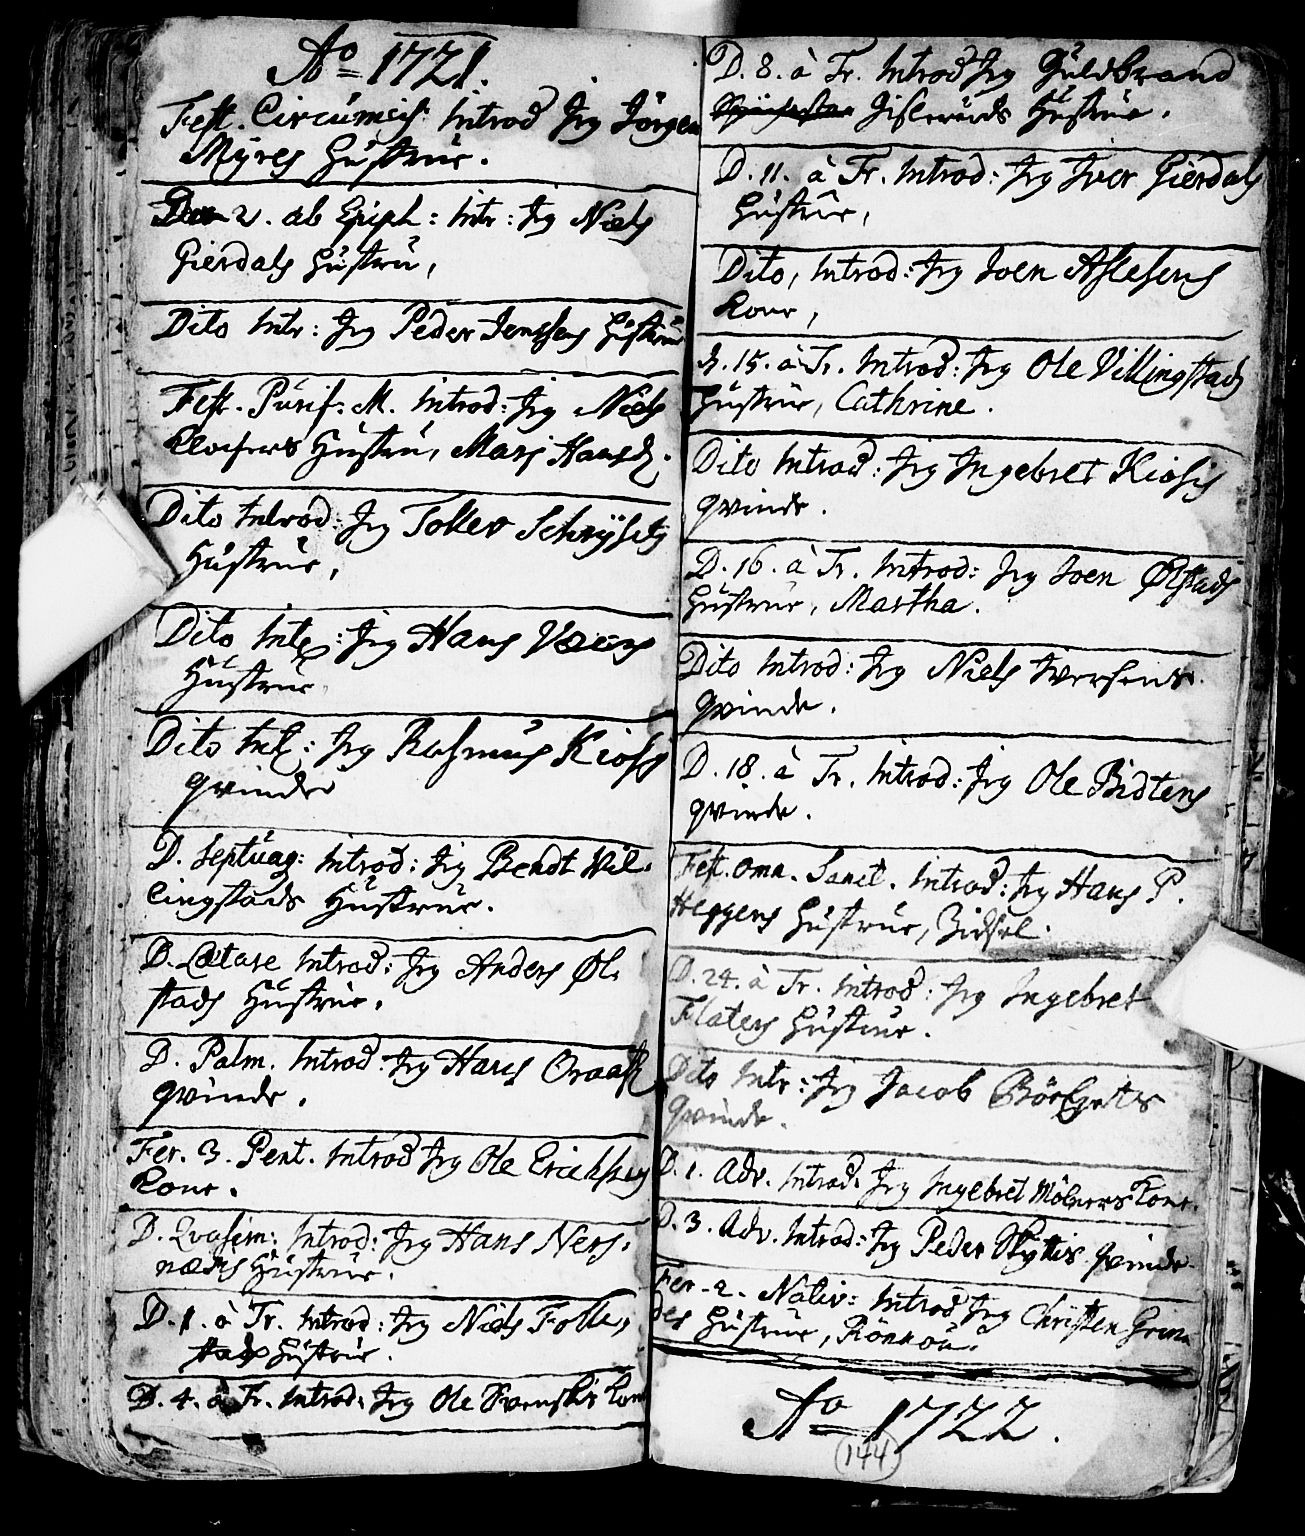 Ao 1721.
Fest. Circumcis: Introd Jeg Jörgen
Myres Hustrue.
Dom 2. ab Epiph: Intr: Jeg Niels
Gierdals Hustru,
Dito Intr: Jeg Peder Jenssens Hustrue
Fest. Purif: M. Introd: Jeg Niels
Klockers Hustru, Mari Hansd.
Dito Introd: Jeg Tollev
Hustrue,
Dito Intr: Jeg Hans
Hustrue
Dito Int: Jeg Rasmus Kioss
qvinde
D. Septuag: Introd: Jeg Bendt Vil-
lingstads Hustrue.
D. Lætare Introd: Jeg Anders Øl-
stads Hustrue.
D. Palm. Introd: Jeg Hans Oraas
qvinde.
Fer. 3. Pent. Introd Jeg Ole Erichsens
Kone.
D. Qvasim: Introd: Jeg Hans Ners-
næss Hustrue.
D. 1. à Tr. Introd: Jeg Niels Folle-
stads Hustrue.
D. 4. à Tr. Introd: Jeg Ole Svenskes Kone
D. 8. à Tr. Introd Jeg Guldbrand
Gisleruds Hustrue.
D. 11. à Tr. Introd: Jeg Iver Gierdals
Hustrue,
Dito, Introd: Jeg Joen Aslesens
Kone,
D. 15. à Tr. Introd: Jeg Ole Villingstads
Hustrue, Cathrine.
Dito Introd: Jeg Ingebret Kiosis
qvinde.
D. 16. à Tr. Introd: Jeg Joen Ølstads
Hustrue, Martha.
Dito Introd: Jeg Niels Iversens
qvinde.
D. 18. à Tr. Introd: Jeg Ole Bidtens
qvinde.
Fest. Omn. Sanct. Introd: Jeg Hans P.
Heggens Hustrue, Zidsel.
D. 24. à Tr. Introd: Jeg Ingebret
Flatens Hustrue.
Dito Intr: Jeg Jacob
Qvinde.
D. 1. Adv. Introd: Jeg Ingebret Mölners Kone.
D. 3. Adv. Introd: Jeg Peder Skyttes qvinde.
Fer. 2. Nativ: Introd Jeg Christen Grim
des Hustrue, Rönnou.
Ao 1722.
144